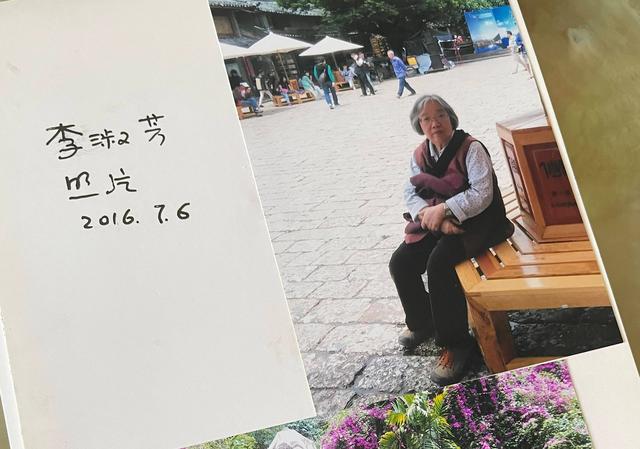 李淑芳
照片
2016. 7. 6